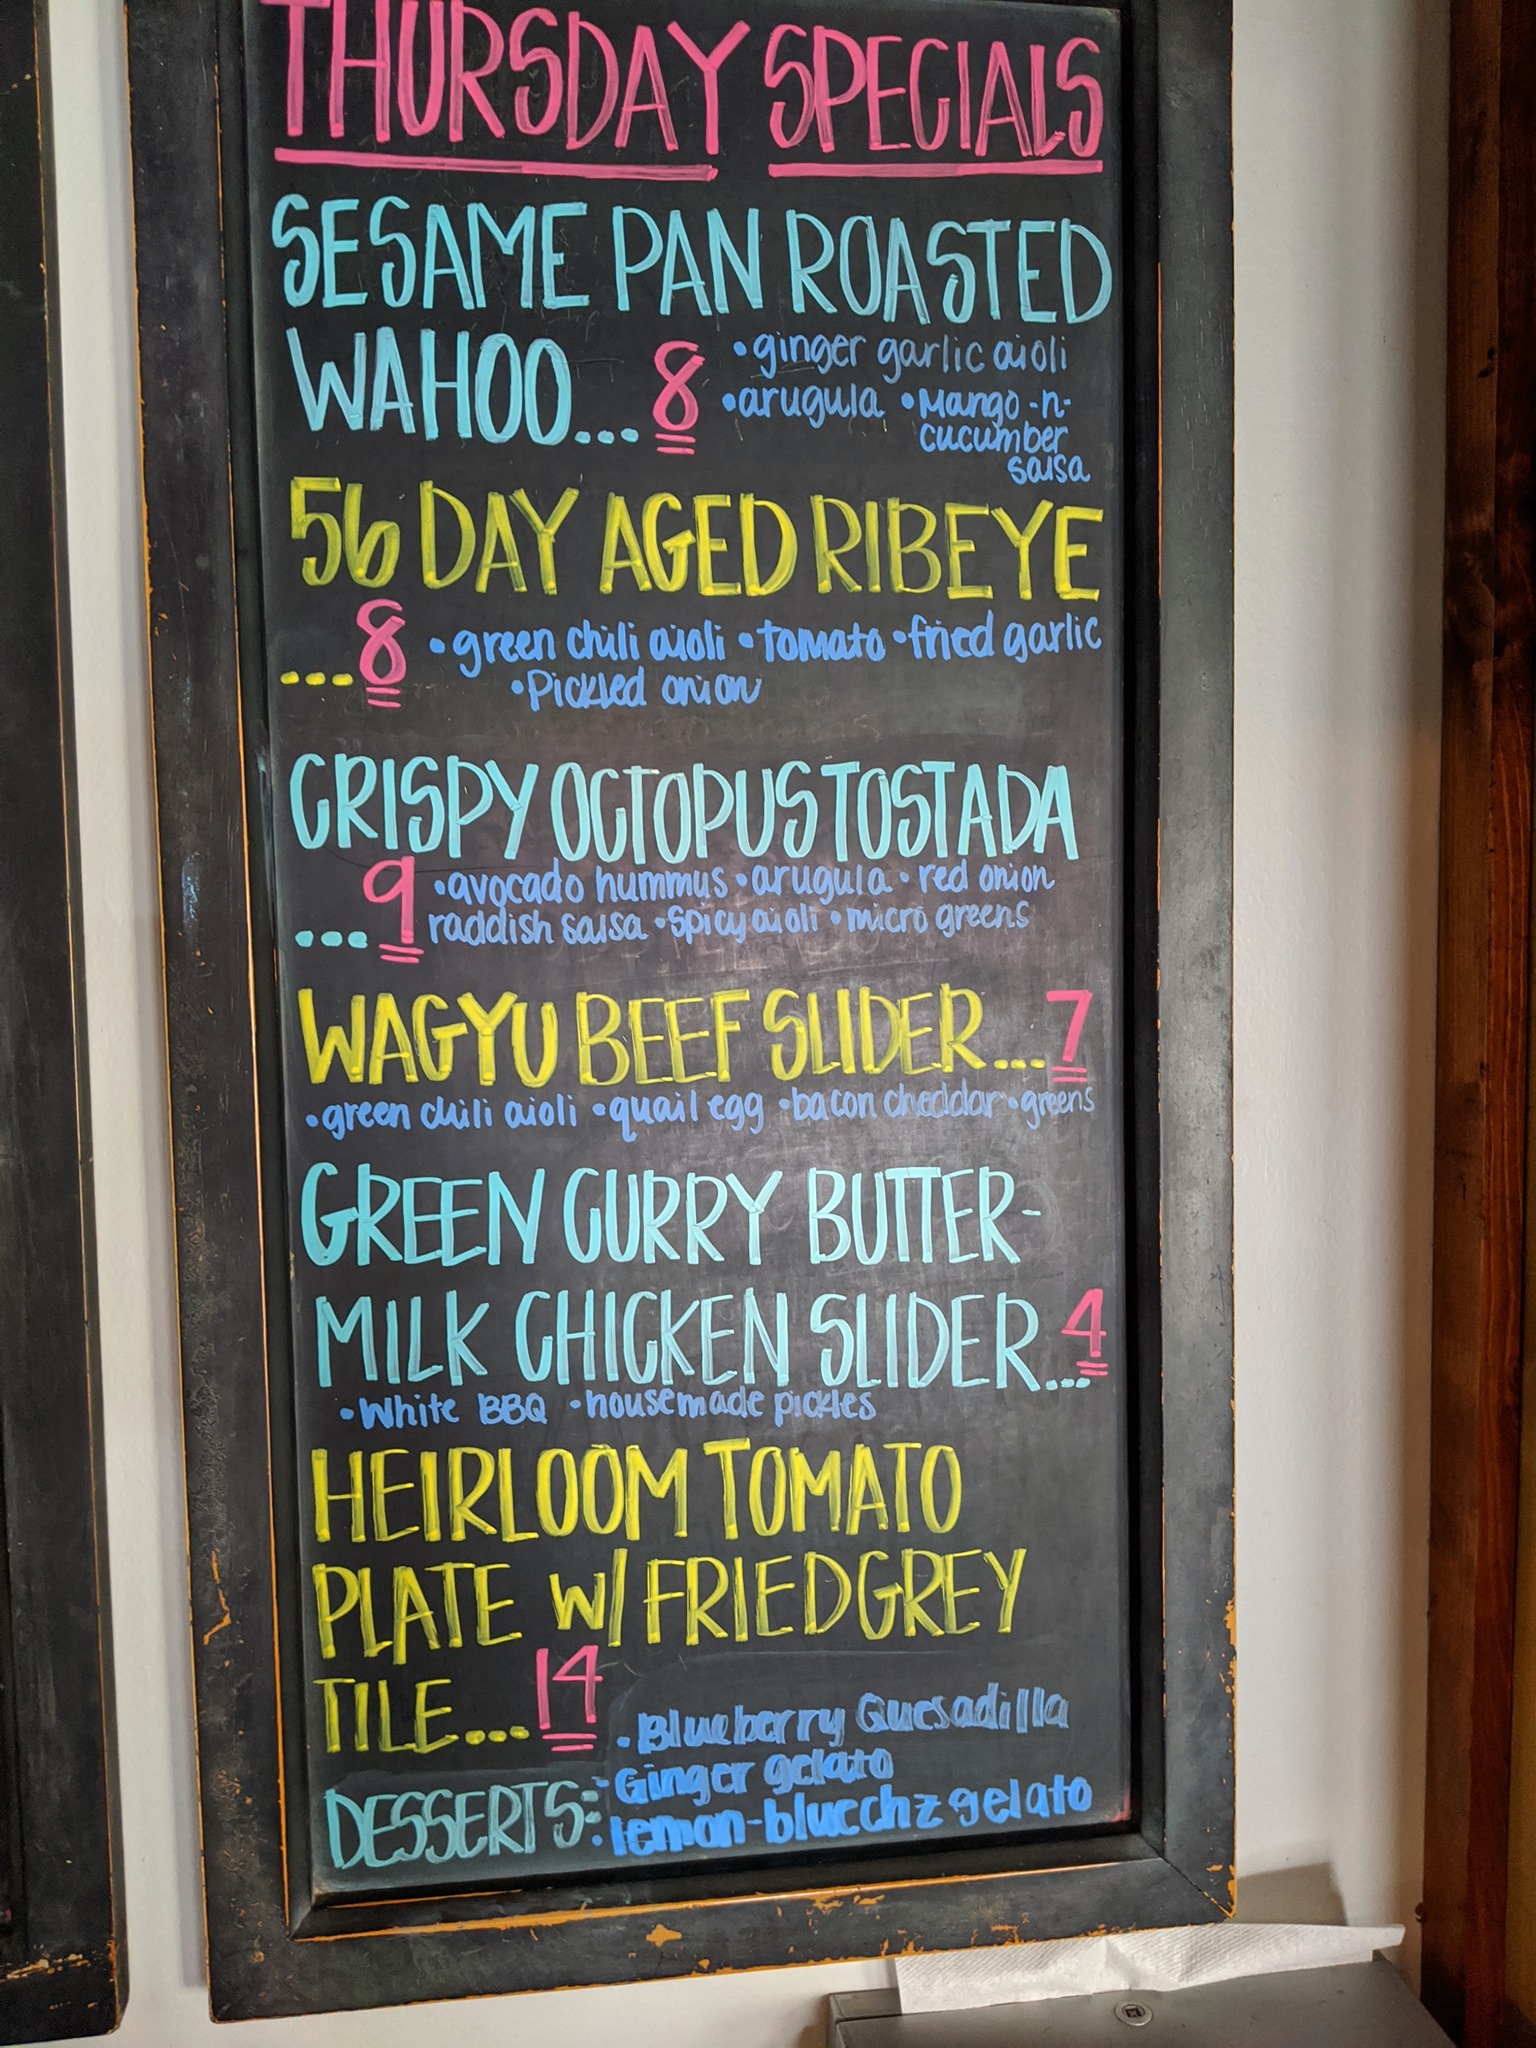 THURSDAY SPECIALS
SESAME PAN ROASTED
WAHOO... 8
• ginger garlic aioli
• arugula • Mango-n-
cucumber
salsa
56 DAY AGED RIBEYE
... 8 • green chili aioli • tomato • fried garlic
• Pickled onion
CRISPY OCTOPUS TOSTADA
... 9 • avocado hummus • arugula • red onion
raddish salsa • spicy aioli • micro greens
WAGYU BEEF SLIDER... 7
• green chili aioli • quail egg • bacon cheddar • greens
GREEN CURRY BUTTER-
MILK CHICKEN SLIDER... 4
• White BBQ • housemade pickles
HEIRLOOM TOMATO
PLATE W/ FRIED GREY
TILE... 14
DESSERTS:
• Blueberry Quesadilla
• Ginger gelato
• lemon-bluechz gelato